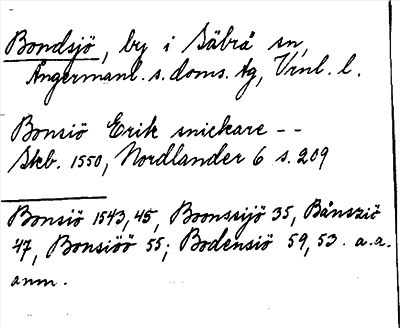 Bondsjö, by i Säbrå sn,
Ångermanl. s. doms. tg, Vrnl. l.
Bonsiö Erik snickare - -
Skb. 1550, Nordlander 6 s. 209
Bonsiö 1543, 45, Boonssijö 35, Bånsziö
47, Bonsiöö 55; Bodensiö 59, 53. a.a.
anm.